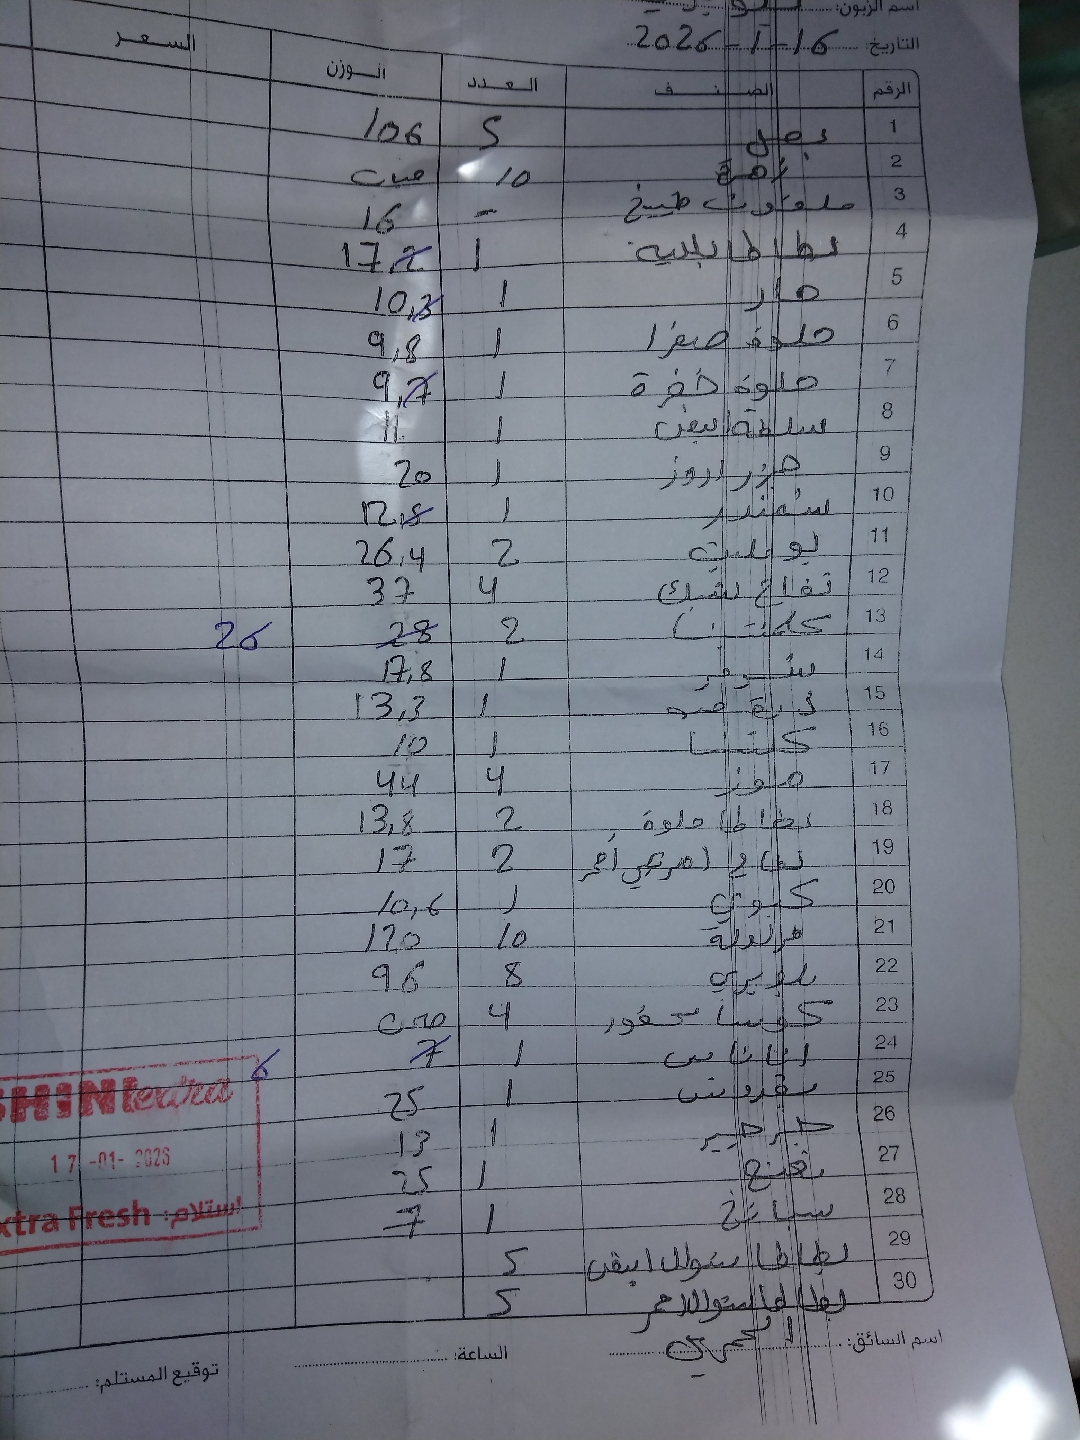 اسم الزبون:
التاريخ: 16-1-2026
الرقم الصنف العدد الوزن السعر
1 بصل 5 106
2 زهرة 10 حبت
3 ملفوف طبيخ - 16
4 بطاطا بلدية 1 17,2
5 حار 1 10,3
6 حلوة صفرا 1 9,8
7 حلوة خضرة 1 9,7
8 سلطة ابيض 1 11
9 جزر اروز 1 20
10 شمندر 1 12,8
11 بوملي 2 26,4
12 تفاح تشبك 4 37
13 كلمنتينا 2 28 26
14 1 17,8
15 ذرة حبه 1 13,3
16 كستنا 1 10
17 موز 4 44
18 بطاطا حلوة 2 13,8
19 تفاح امريكي أحمر 2 17
20 كيوي 1 10,6
21 فراولة 10 120
22 بلوبيري 8 96
23 كوسا محفور 4 حبت
24 اناناس 1 7 6
25 بقدونس 1 25
26 جرجير 1 13
27 نعنع 1 25
28 سبانخ 1 7
29 بطاطا ستوال ابيض 5
30 بطاطا ستوال احمر 5
SHINI extra
17-01-2026
استلام: Extra Fresh
اسم السائق: العمري الساعة: توقيع المستلم: